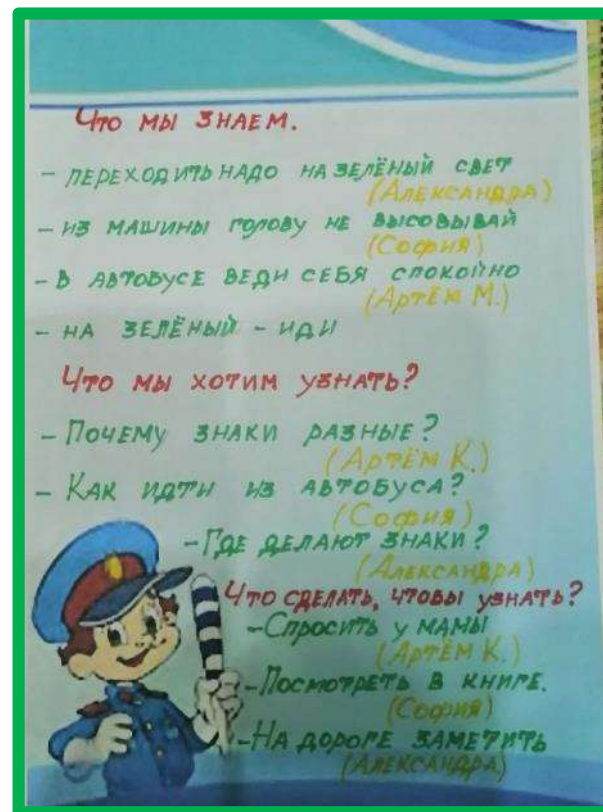 Что мы знаем.
- переходить надо на зелёный свет
(Александра)
- из машины голову не высовывай
(София)
- в автобусе веди себя спокойно
(Артём М.)
- на зелёный - иди
Что мы хотим узнать?
- Почему знаки разные?
(Артём К.)
- Как идти из автобуса?
(София)
- Где делают знаки?
(Александра)
Что сделать, чтобы узнать?
- Спросить у мамы
(Артём К.)
- Посмотреть в книге.
(София)
- На дороге заметить
(Александра)